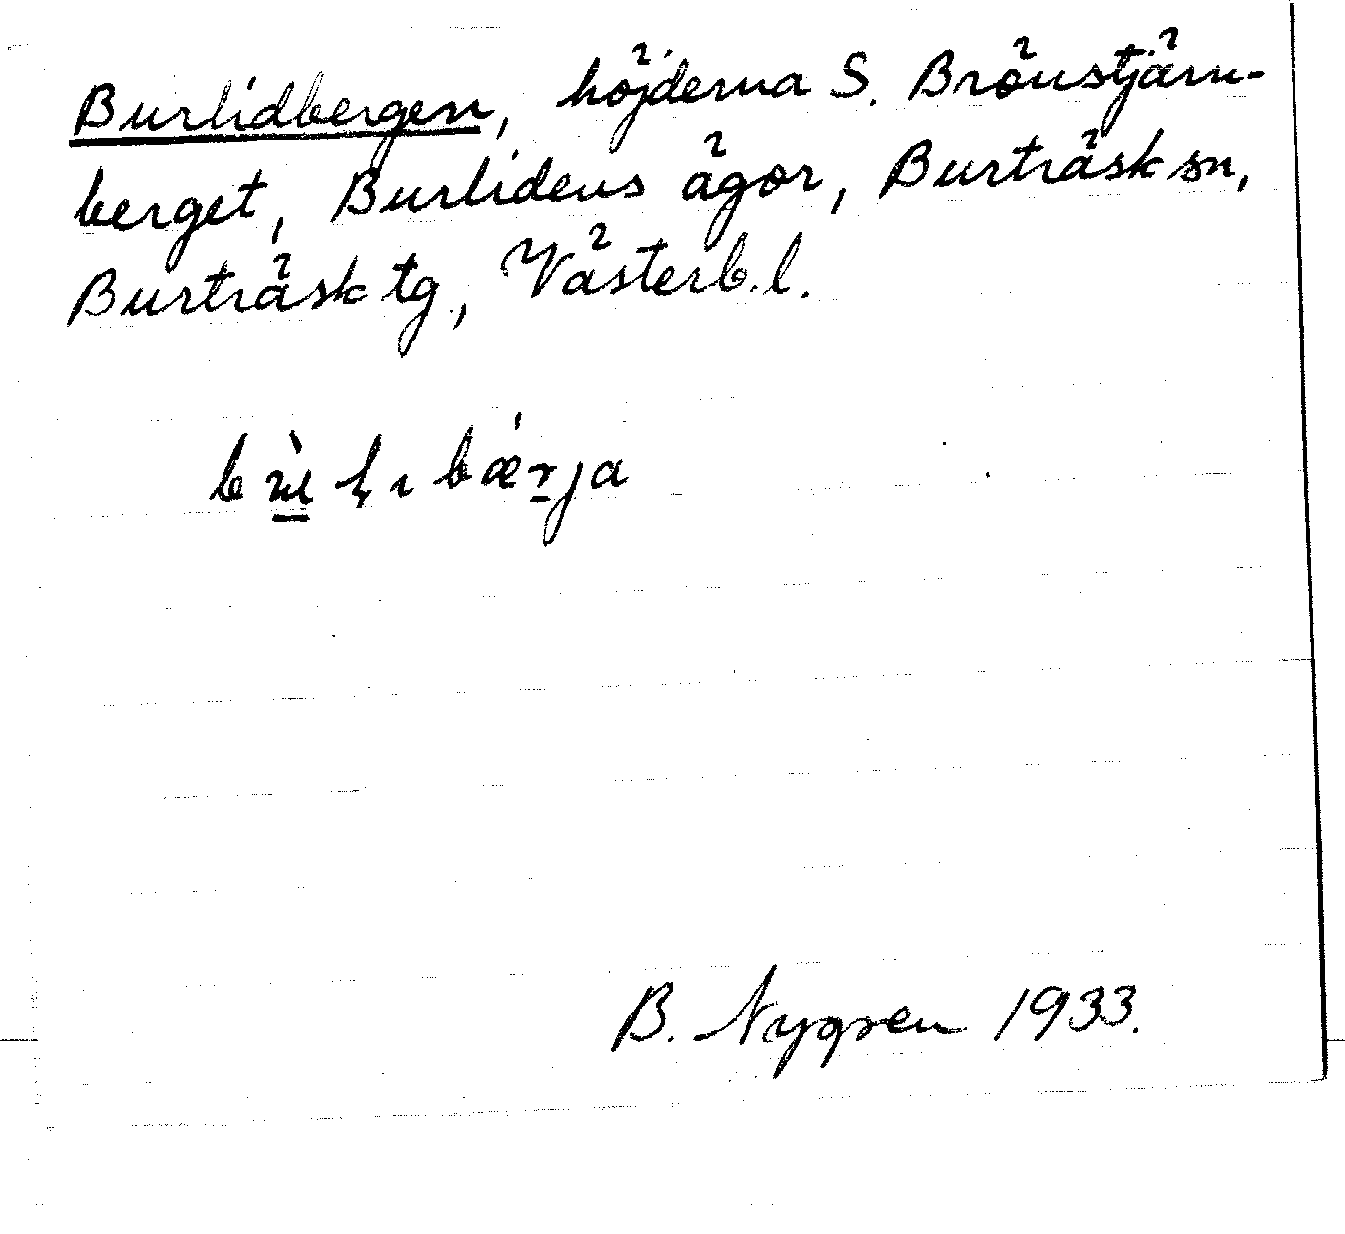 Burlidbergen, höjderna S. Brönstjärn-
berget, Burlidens ägor, Burträsk sn,
Burträsk tg, Västerb. l.
bu̠̇ɭɩbǽr̠ja
B. Nygren 1933.